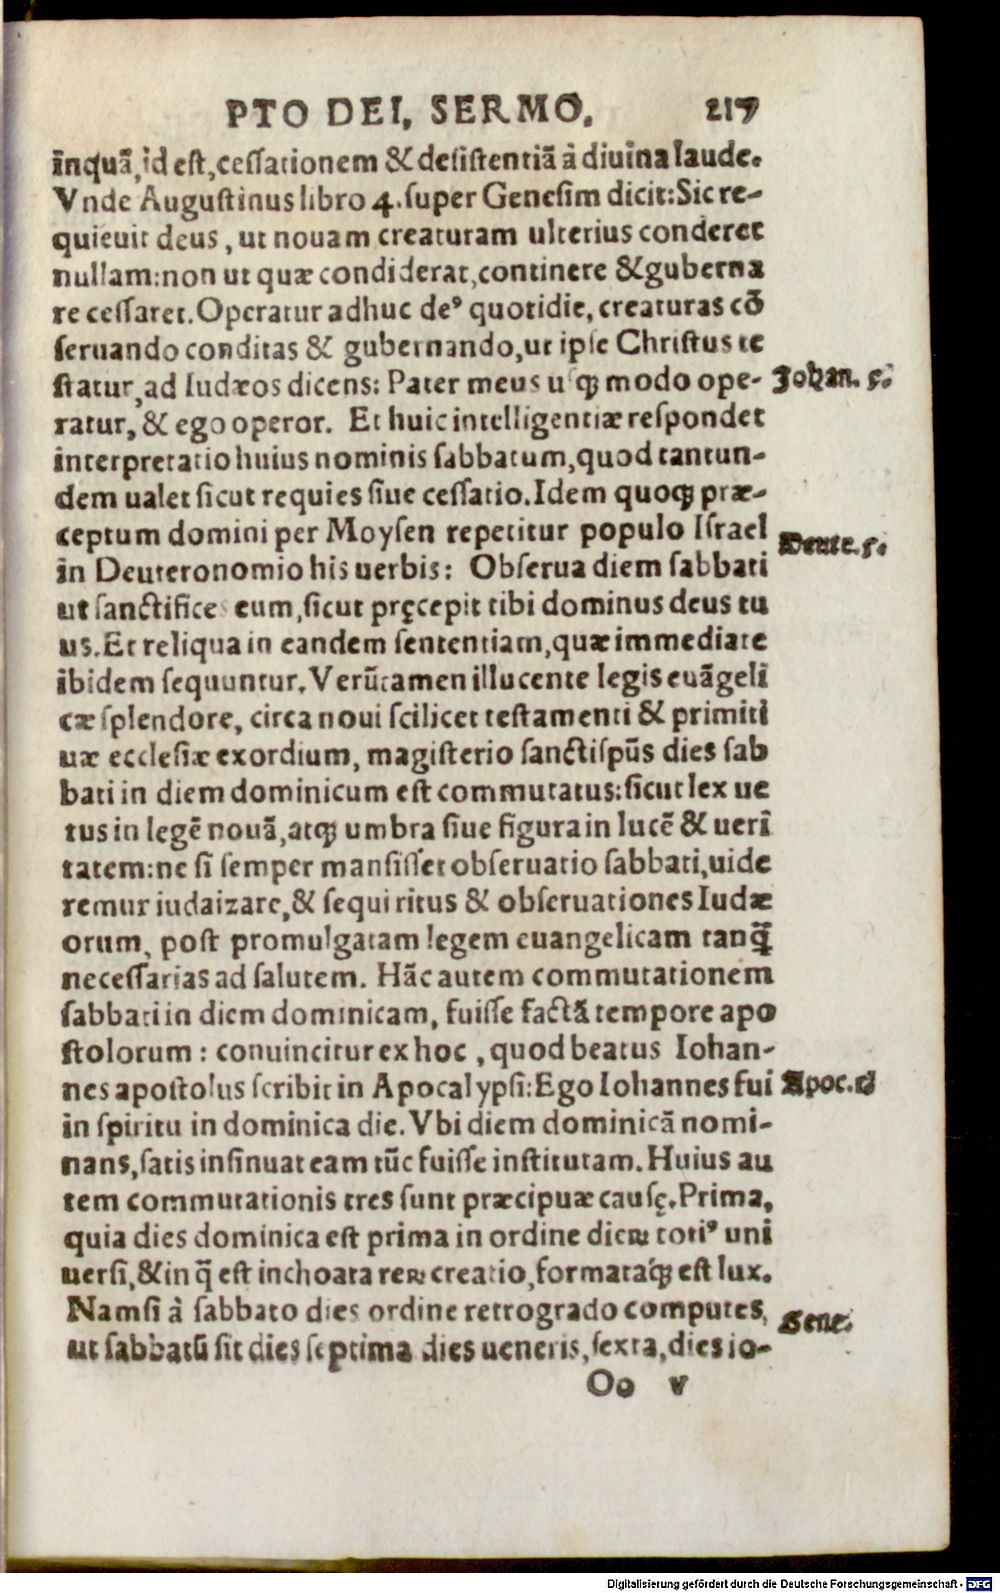 PTO DEI, SERMO. 217
inquã, id est, cessationem & desistentiã à diuina laude.
Vnde Augustinus libro 4. super Genesim dicit: Sic re-
quieuit deus, ut nouam creaturam ulterius conderet
nullam: non ut quæ condiderat, continere & guberna
re cessaret. Operatur adhuc deꝰ quotidie, creaturas cõ
seruando conditas & gubernando, ut ipse Christus te
statur, ad Iudæos dicens: Pater meus usqꝫ modo ope- Johan. 5.
ratur, & ego operor. Et huic intelligentiæ respondet
interpretatio huius nominis sabbatum, quod tantun-
dem ualet sicut requies siue cessatio. Idem quoqꝫ præ-
ceptum domini per Moysen repetitur populo Israel
in Deuteronomio his uerbis: Obserua diem sabbati Deute. 5.
ut sanctifices eum, sicut pręcepit tibi dominus deus tu
us. Et reliqua in eandem sententiam, quæ immediate
ibidem sequuntur. Verũtamen illucente legis euãgeli
cæ splendore, circa noui scilicet testamenti & primiti
uæ ecclesiæ exordium, magisterio sanctispũs dies sab
bati in diem dominicum est commutatus: sicut lex ue
tus in legẽ nouã, atqꝫ umbra siue figura in lucẽ & ueri
tatem: ne si semper mansisset obseruatio sabbati, uide
remur iudaizare, & sequi ritus & obseruationes Iudæ
orum, post promulgatam legem euangelicam tanq̃
necessarias ad salutem. Hãc autem commutationem
sabbati in diem dominicam, fuisse factã tempore apo
stolorum: conuincitur ex hoc, quod beatus Iohan-
nes apostolus scribit in Apocalypsi: Ego Iohannes fui Apoc. d
in spiritu in dominica die. Vbi diem dominicã nomi-
nans, satis insinuat eam tũc fuisse institutam. Huius au
tem commutationis tres sunt præcipuæ causę. Prima,
quia dies dominica est prima in ordine dieꝝ totiꝰ uni
uersi, & in q̃ est inchoata reꝝ creatio, formataqꝫ est lux.
Nam si à sabbato dies ordine retrogrado computes, Gene.
ut sabbatũ sit dies septima dies ueneris, sexta, dies io-
Oo v
Digitalisierung gefördert durch die Deutsche Forschungsgemeinschaft - DFG